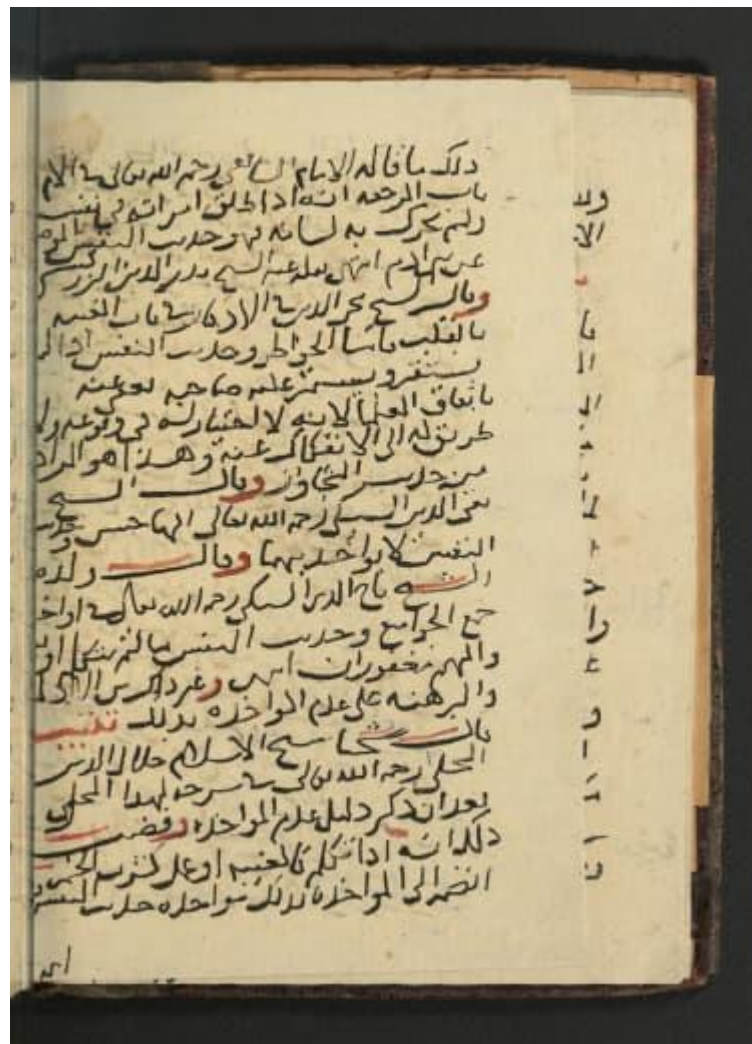 ذلك ما قاله الامام الشافعي رحمه الله تعالى في الام
باب الرجعة انه اذا طلق امراته في نفسه
ولم يحرك به لسانه فهو حديث النفس الموضوع
عن بني ادم انتهى نقله عنه الشيخ بدر الدين الزركشي
وقال الشيخ محي الدين في الاذكار في باب الغيبة
بالقلب فاما الخواطر وحديث النفس اذا لم
يستقر ويستمر عليه صاحبه فمعفو عنه
باتفاق العلما لانه لا اختيار له في وقوعه ولا
طريق له الى الانفكاك عنه وهذا هو المراد
من حديث التجاوز وقال الشيخ
تقي الدين السبكي رحمه الله تعالى الهاجس و
النفس لا يواخذ بهما وقال ولده
الشيخ تاج الدين السبكي رحمه الله تعالى في اواخر
جمع الجوامع وحديث النفس ما لم يتكلم او
والهم مغفوران انتهى وغير ذلك من
والبرهنة على عدم المواخذة بذلك تنبيه
قال شيخنا شيخ الاسلام جلال الدين
المحلي رحمه الله تعالى في شرحه لهذا المحل
بعد ان ذكر دليل عدم المواخذة وقضية
ذلك انه اذا تكلم كالغيبة او عمل كشرب الخمر
انضم الى المواخذة بذلك مواخذة حديث النفس